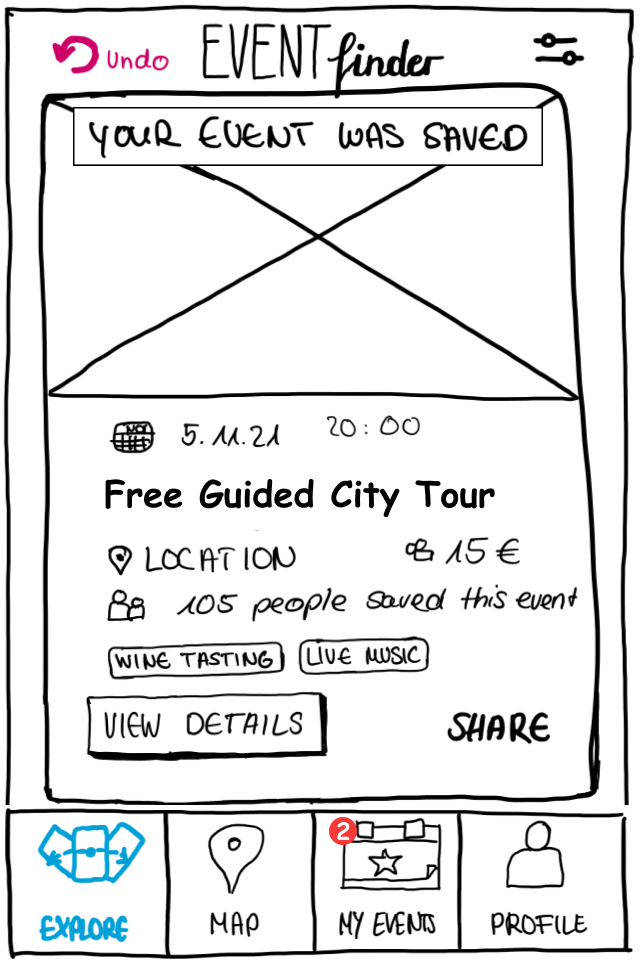 Undo EVENTfinder
YOUR EVENT WAS SAVED
5.11.21 20:00
Free Guided City Tour
LOCATION 15 €
105 people saved this event
WINE TASTING LIVE MUSIC
VIEW DETAILS SHARE
2
EXPLORE MAP MY EVENTS PROFILE